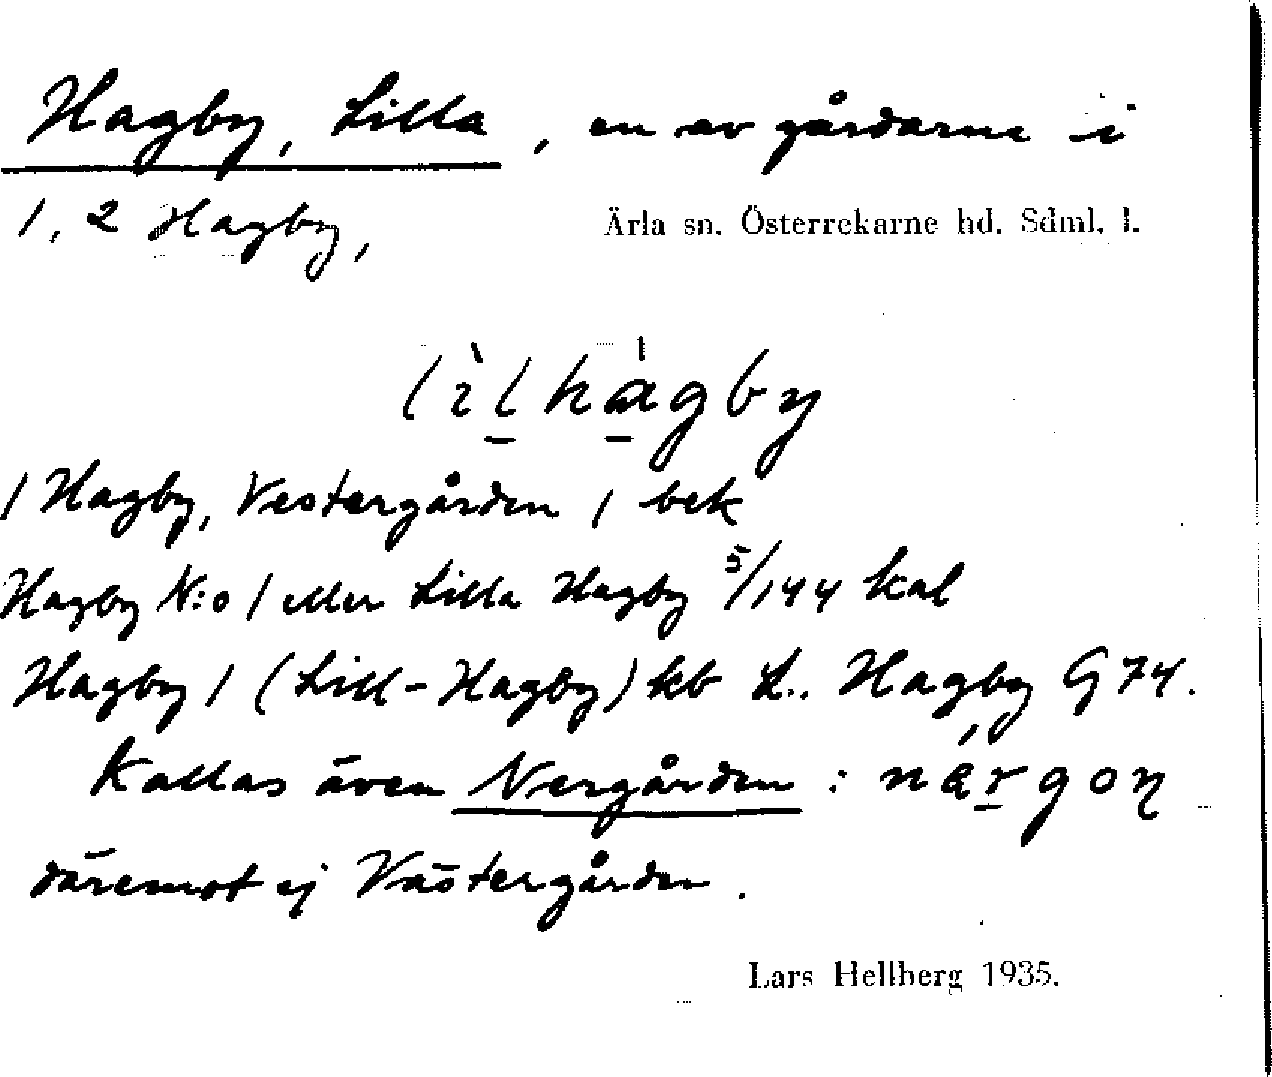 Hagby, Lilla, en av gårdarne i
1, 2 Hagby, Ärla sn. Österrekarne hd. Sdml. l.
lìlhágby
1 Hagby, Vestergården 1 bek
Hagby N:o 1 eller Lilla Hagby 5/144 kal
Hagby 1 (Lill-Hagby) kb L. Hagby G 74.
Kallas även Nergården : nǽrgoɳ
däremot ej Västergården.
Lars Hellberg 1935.